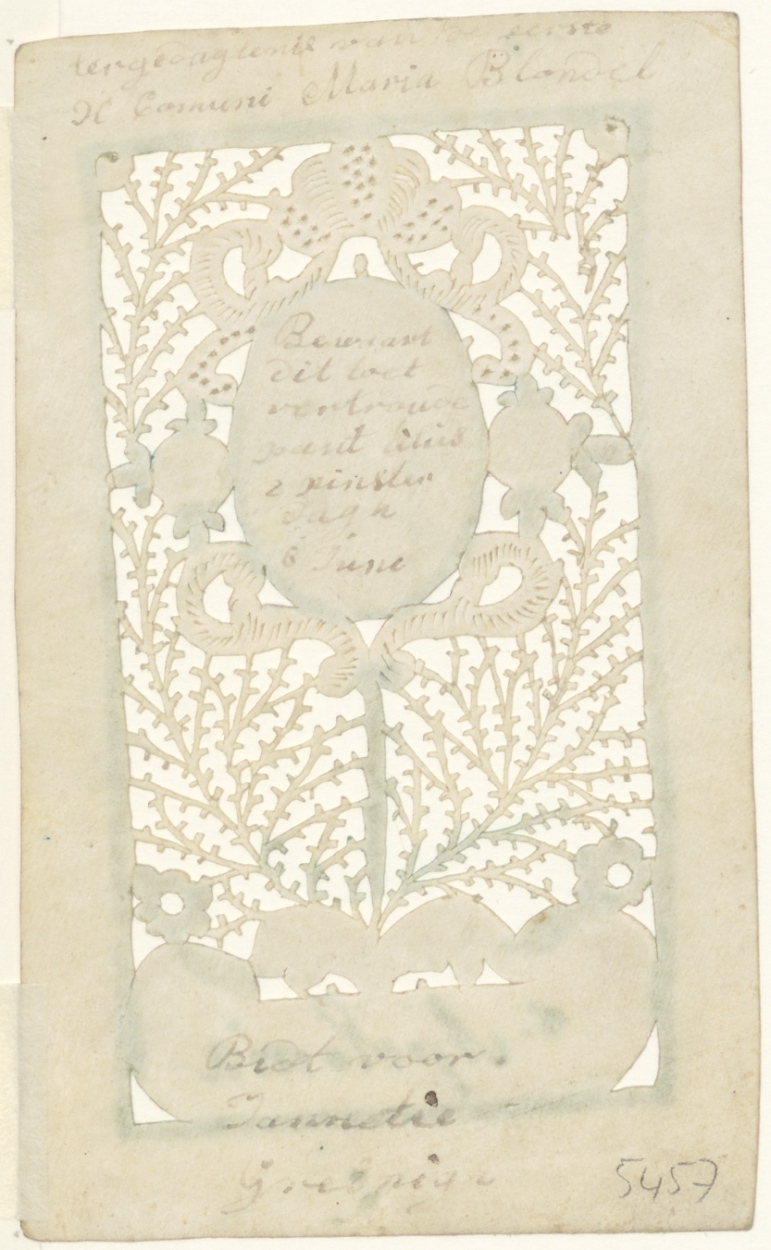 tergedagtenis van de eerste
H Comuni Maria Blondel
Bewaart
dit toet
vertroude
pant
2 pinster
dagh
6 June
Bidt voor
Jannetie
5457